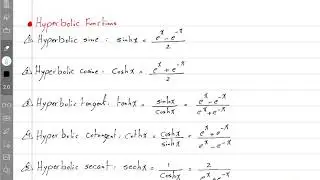 Hyperbolic Functions
① Hyperbolic sine : sinhx = (e^x - e^-x) / 2
② Hyperbolic cosine : coshx = (e^x + e^-x) / 2
③ Hyperbolic tangent : tanhx = sinhx / coshx = (e^x - e^-x) / (e^x + e^-x)
④ Hyperbolic cotangent : cothx = coshx / sinhx = (e^x + e^-x) / (e^x - e^-x)
⑤ Hyperbolic secant : sechx = 1 / coshx = 2 / (e^x + e^-x)